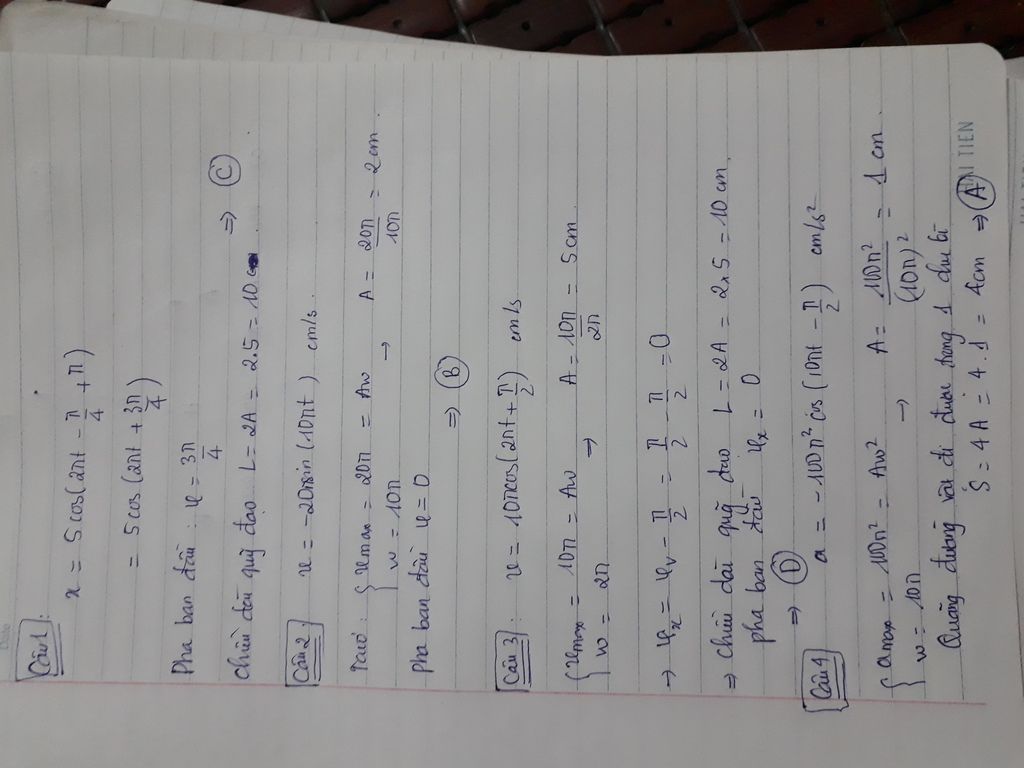 Câu 1:
x = 5cos(2πt - π/4 + π)
= 5cos(2πt + 3π/4)
Pha ban đầu: φ = 3π/4
Chiều dài quỹ đạo L = 2A = 2.5 = 10 cm ⇒ C
Câu 2: v = -20πsin(10πt) cm/s.
Ta có: { vmax = 20π = Aω → A = 20π/10π = 2 cm
ω = 10π
Pha ban đầu φ = 0
⇒ B
Câu 3: v = 10πcos(2πt + π/2) cm/s
{ vmax = 10π = Aω → A = 10π/2π = 5 cm
ω = 2π
→ φx = φv - π/2 = π/2 - π/2 = 0
⇒ chiều dài quỹ đạo L = 2A = 2.5 = 10 cm.
pha ban đầu φx = 0
⇒ D
Câu 4 a = -100π² cos(10πt - π/2) cm/s²
{ amax = 100π² = Aω² → A = 100π²/(10π)² = 1 cm.
ω = 10π
Quãng đường vật đi được trong 1 chu kì
S = 4A = 4.1 = 4cm ⇒ A
TIEN